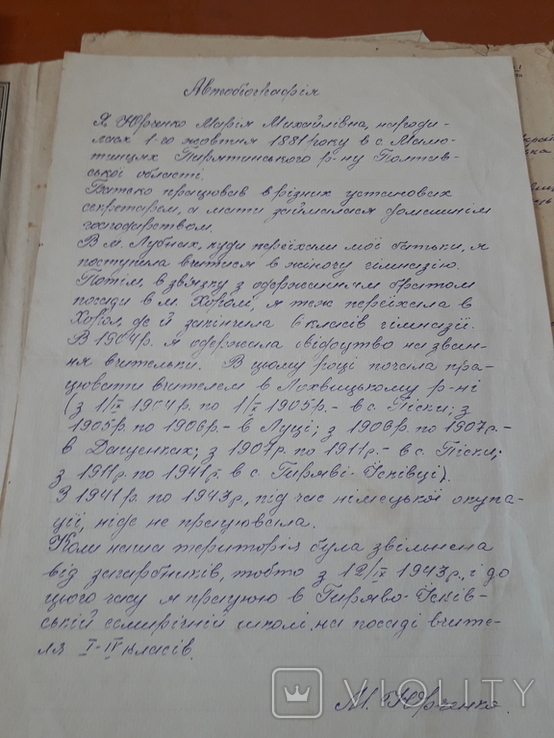 Автобіографія
Я, Юрченко Марія Михайлівна, народи-
лась 1-го жовтня 1881 року в с. Мамо-
тинцях Пирятинського р-ну Полтав-
ської області.
Батько працював в різних установах
секретарем, а мати займалася домашнім
господарством.
В м. Лубнах, куди переїхали мої батьки, я
поступила вчитися в жіночу гімназію.
Потім, в звязку з одержанням братом
посади в м. Хоролі, я теж переїхала в
Хорол, де й закінчила 6 класів гімназії.
В 1904 р. я одержала свідоцтво на зван-
ня вчительки. В цьому році почала пра-
цювати вчителем в Лохвицькому р-ні
(з 1/IX 1904 р. по 1/X 1905 р. - в с. Піски; з
1905 р. по 1906 р. - в Луці; з 1906 р. по 1907 р. -
в Даценках; з 1907 р. по 1911 р. - в с. Піски;
з 1911 р. по 1941 р. в с. Гиряві-Ісківці).
З 1941 р. по 1943 р., під час німецької окупа-
ції, ніде не працювала.
Коли наша територія була звільнена
від загарбників, тобто з 12/IX 1943 р., і до
цього часу я працюю в Гиряво-Ісків-
ській семирічній школі на посаді вчите-
ля I-IV класів.
М. Юрченко.
VIOLITY